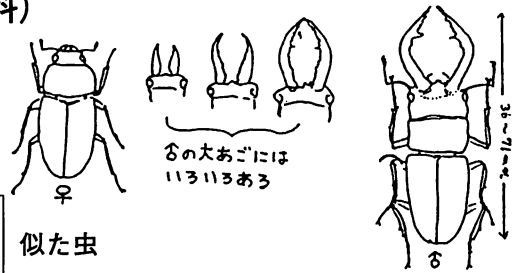 科)
♂の大あごには
いろいろある
♀
36~71mm.
♂
似た虫